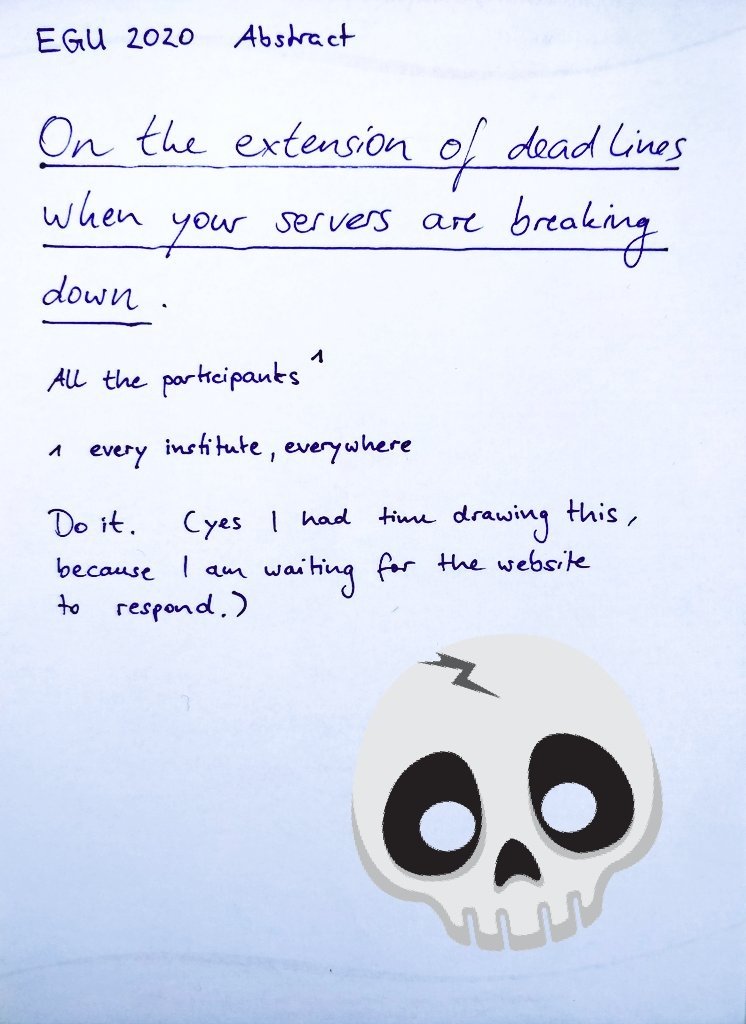 EGU 2020 Abstract
On the extension of deadlines
when your servers are breaking
down.
All the participants ¹
1 every institute, everywhere
Do it. (yes I had time drawing this,
because I am waiting for the website
to respond.)